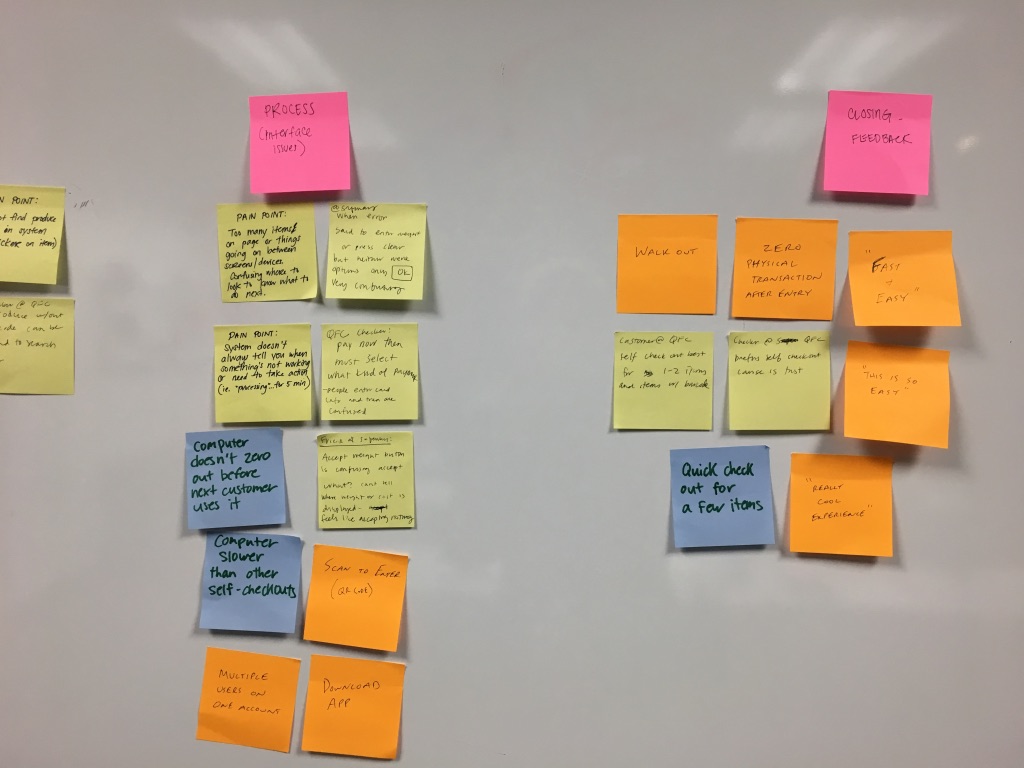 POINT:
t find produce
in system
sticker on item)
@ QFC
produce w/out
code can be
to search
PROCESS
(interface
issues)
PAIN POINT:
Too many items
on page or things
going on between
screens/devices.
Confusing where to
look to know what to
do next.
When error
Said to enter weight
or press clear
but neither were
options only OK
very confusing
PAIN POINT:
System doesn't
always tell you when
something's not working
or need to take action
(ie. "processing"...for 5 min)
QFC Checker:
pay now then
must select
what kind of payment
- people enter card
info and then are
confused
Computer
doesn't zero
out before
next customer
uses it
Accept weight button
is confusing accept
what? can't tell
when weight or cost is
displayed -
feels like accepting nothing
Computer
Slower
than other
self-checkouts
SCAN TO ENTER
(QR CODE)
MULTIPLE
USERS ON
ONE ACCOUNT
DOWNLOAD
APP
CLOSING -
FEEDBACK
WALK OUT
ZERO
PHYSICAL
TRANSACTION
AFTER ENTRY
"FAST
+
EASY"
Customer @ QFC
Self check out best
for 1-2 items
and items w/ barcode
Checker @ QFC
prefers self checkout
cause is fast
"THIS IS SO
EASY"
Quick check
out for
a few items
"REALLY
COOL
EXPERIENCE"